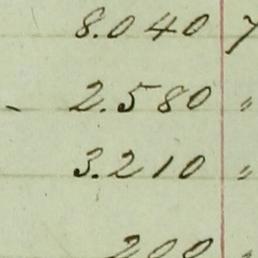 8.040 7
- 2.580 "
3.210 "
200 "